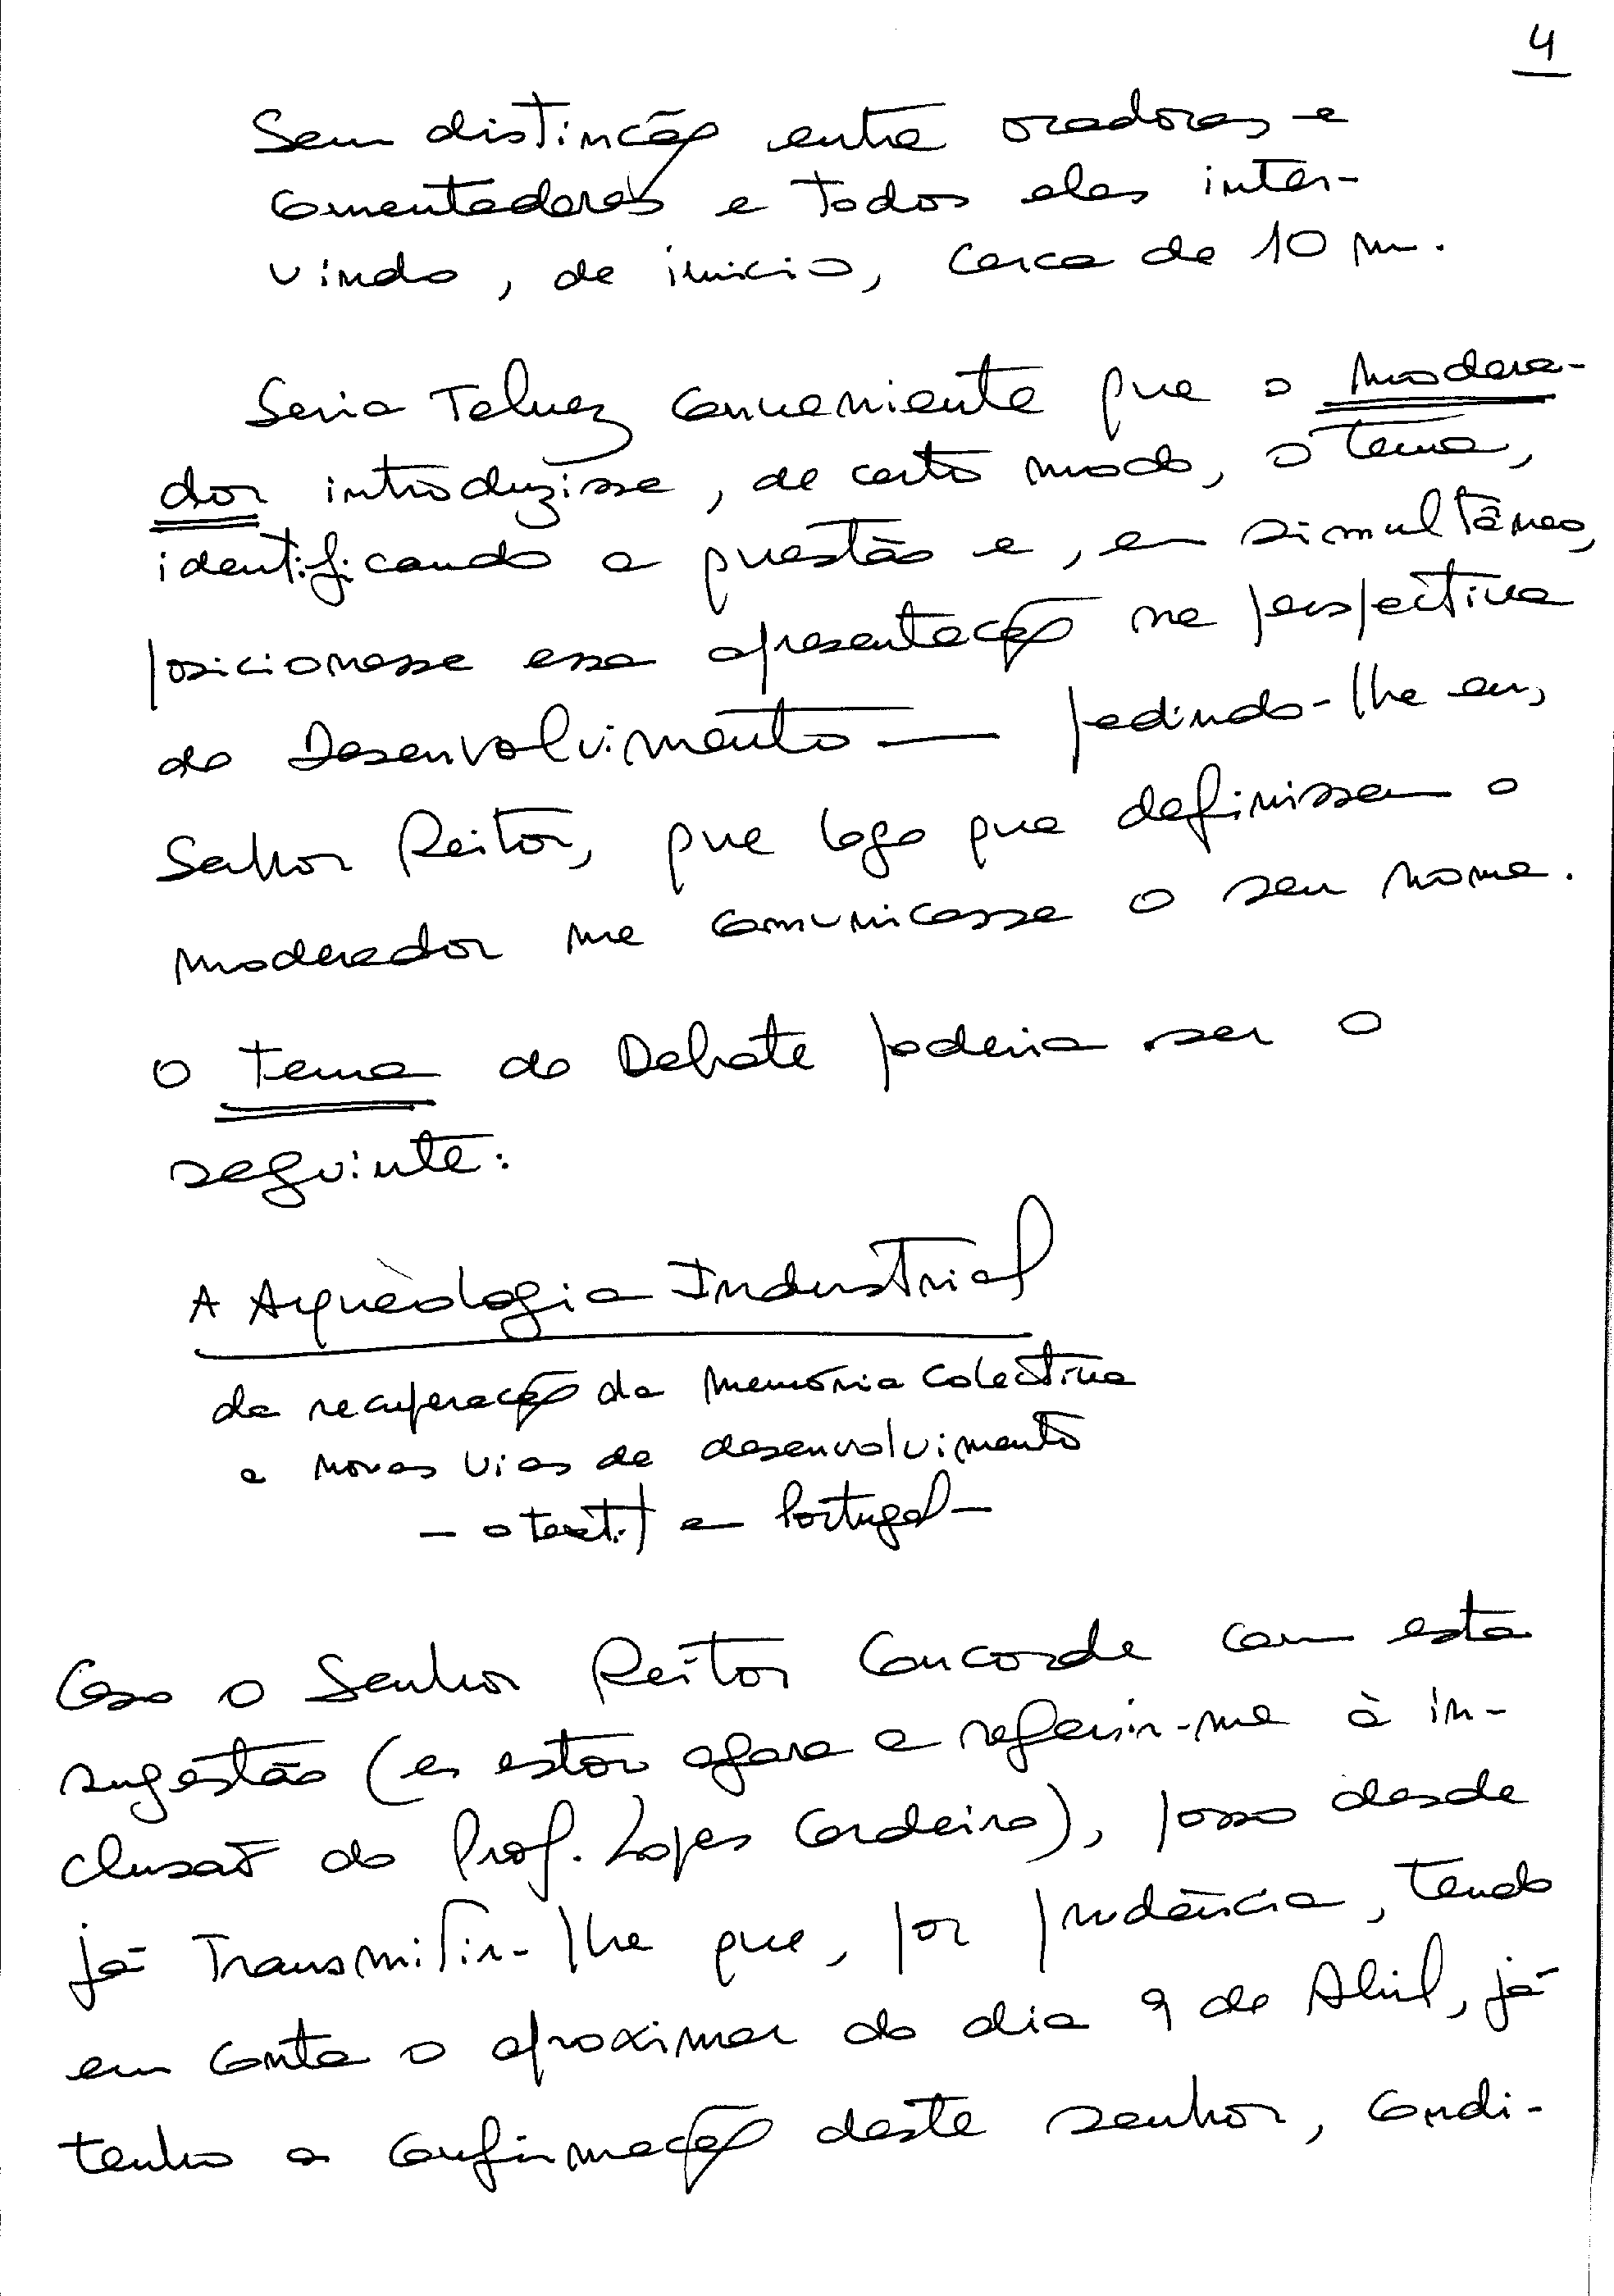 4
Sem distinção entre oradores e
comentadores e todos eles inter-
vindo, de início, cerca de 10 m.
Seria Talvez conveniente que o modera-
dor introduzisse, de certo modo, o Tema,
identificando a questão e, em simultâneo,
posicionasse essa apresentação na perspectiva
do Desenvolvimento — pedindo-lhe eu,
Senhor Reitor, que logo que definissem o
moderador me comunicasse o seu nome.
O Tema do Debate poderia ser o
seguinte:
A Arqueologia Industrial
da recuperação da Memória Colectiva
a novas vias de desenvolvimento
- o textil em Portugal -
Caso o Senhor Reitor Concorde com esta
sugestão (e estou agora a referir-me à in-
clusão do Prof. Lopes Cordeiro), posso desde
já Transmitir-lhe que, por prudência, tendo
em conta o aproximar do dia 9 de Abril, já
tenho a confirmação deste senhor, condi-